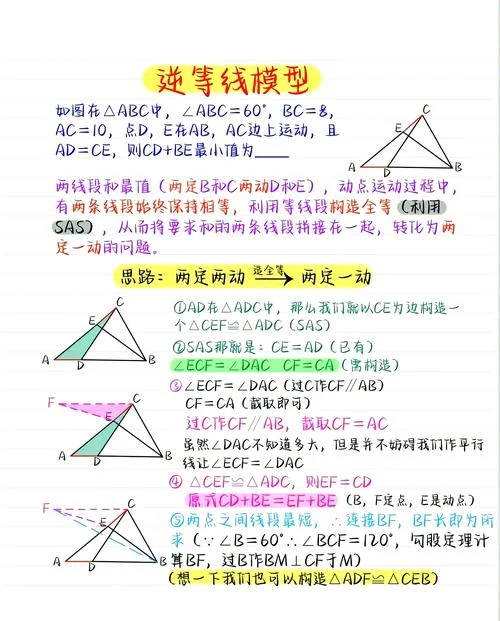 逆等线模型
如图在△ABC中，∠ABC=60°，BC=8，
AC=10，点D，E在AB，AC边上运动，且
AD=CE，则CD+BE最小值为____
C
E
A
D
B
两线段和最值（两定B和C两动D和E），动点运动过程中，
有两条线段始终保持相等，利用等线段构造全等（利用
SAS），从而将要求和的两条线段拼接在一起，转化为两
定一动的问题。
思路：两定两动 造全等 两定一动
C
E
A
D
B
①AD在△ADC中，那么我们就以CE为边构造一
个△CEF≌△ADC（SAS）
②SAS那就是：CE=AD（已有）
∠ECF=∠DAC CF=CA（需构造）
F
C
E
A
D
B
③∠ECF=∠DAC（过C作CF∥AB）
CF=CA（截取即可）
过C作CF∥AB，截取CF=AC
虽然∠DAC不知道多大，但是并不妨碍我们作平行
线让∠ECF=∠DAC
④△CEF≌△ADC，则EF=CD
原式CD+BE=EF+BE（B，F定点，E是动点）
F
C
E
A
D
B
⑤两点之间线段最短，∴连接BF，BF长即为所
求（∵∠B=60°∴∠BCF=120°，勾股定理计
算BF，过B作BM⊥CF于M）
（想一下我们也可以构造△ADF≌△CEB）